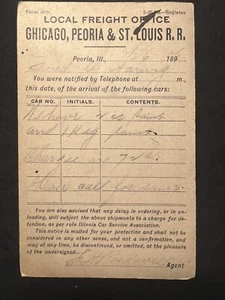 LOCAL FREIGHT OFFICE
CHICAGO, PEORIA & ST. LOUIS R. R.
Peoria, Ill., 189
You were notified by Telephone at m.,
this date, of the arrival of the following cars:
CAR NO. INITIALS. CONTENTS.
and 1 Keg
Please call for
You are also advised that any delay in ordering, or in un-
loading, will subject the above shipments to a charge for de-
tention, as per rule Illinois Car Service Association.
This notice is mailed for your protection and shall not be
considered in any other sense, and not a confirmation, and
may at any time, be discontinued, or omitted, at the pleasure
of the undersigned.
Agent